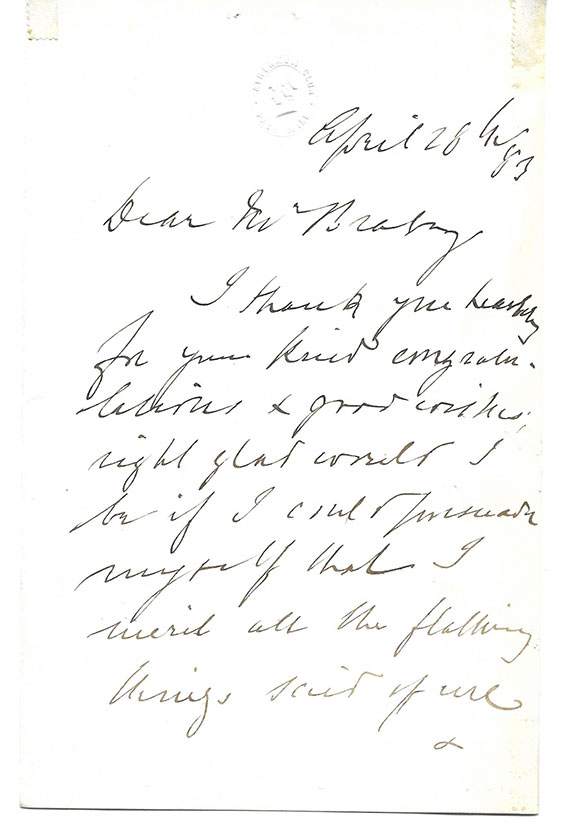 ATHENÆUM CLUB
PALL MALL
April 28th/83
Dear Mr Braby
I thank you heartily
for your kind congratu-
lations & good wishes,
right glad would I
be if I could persuade
myself that I
merit all the flattering
things said of me
&